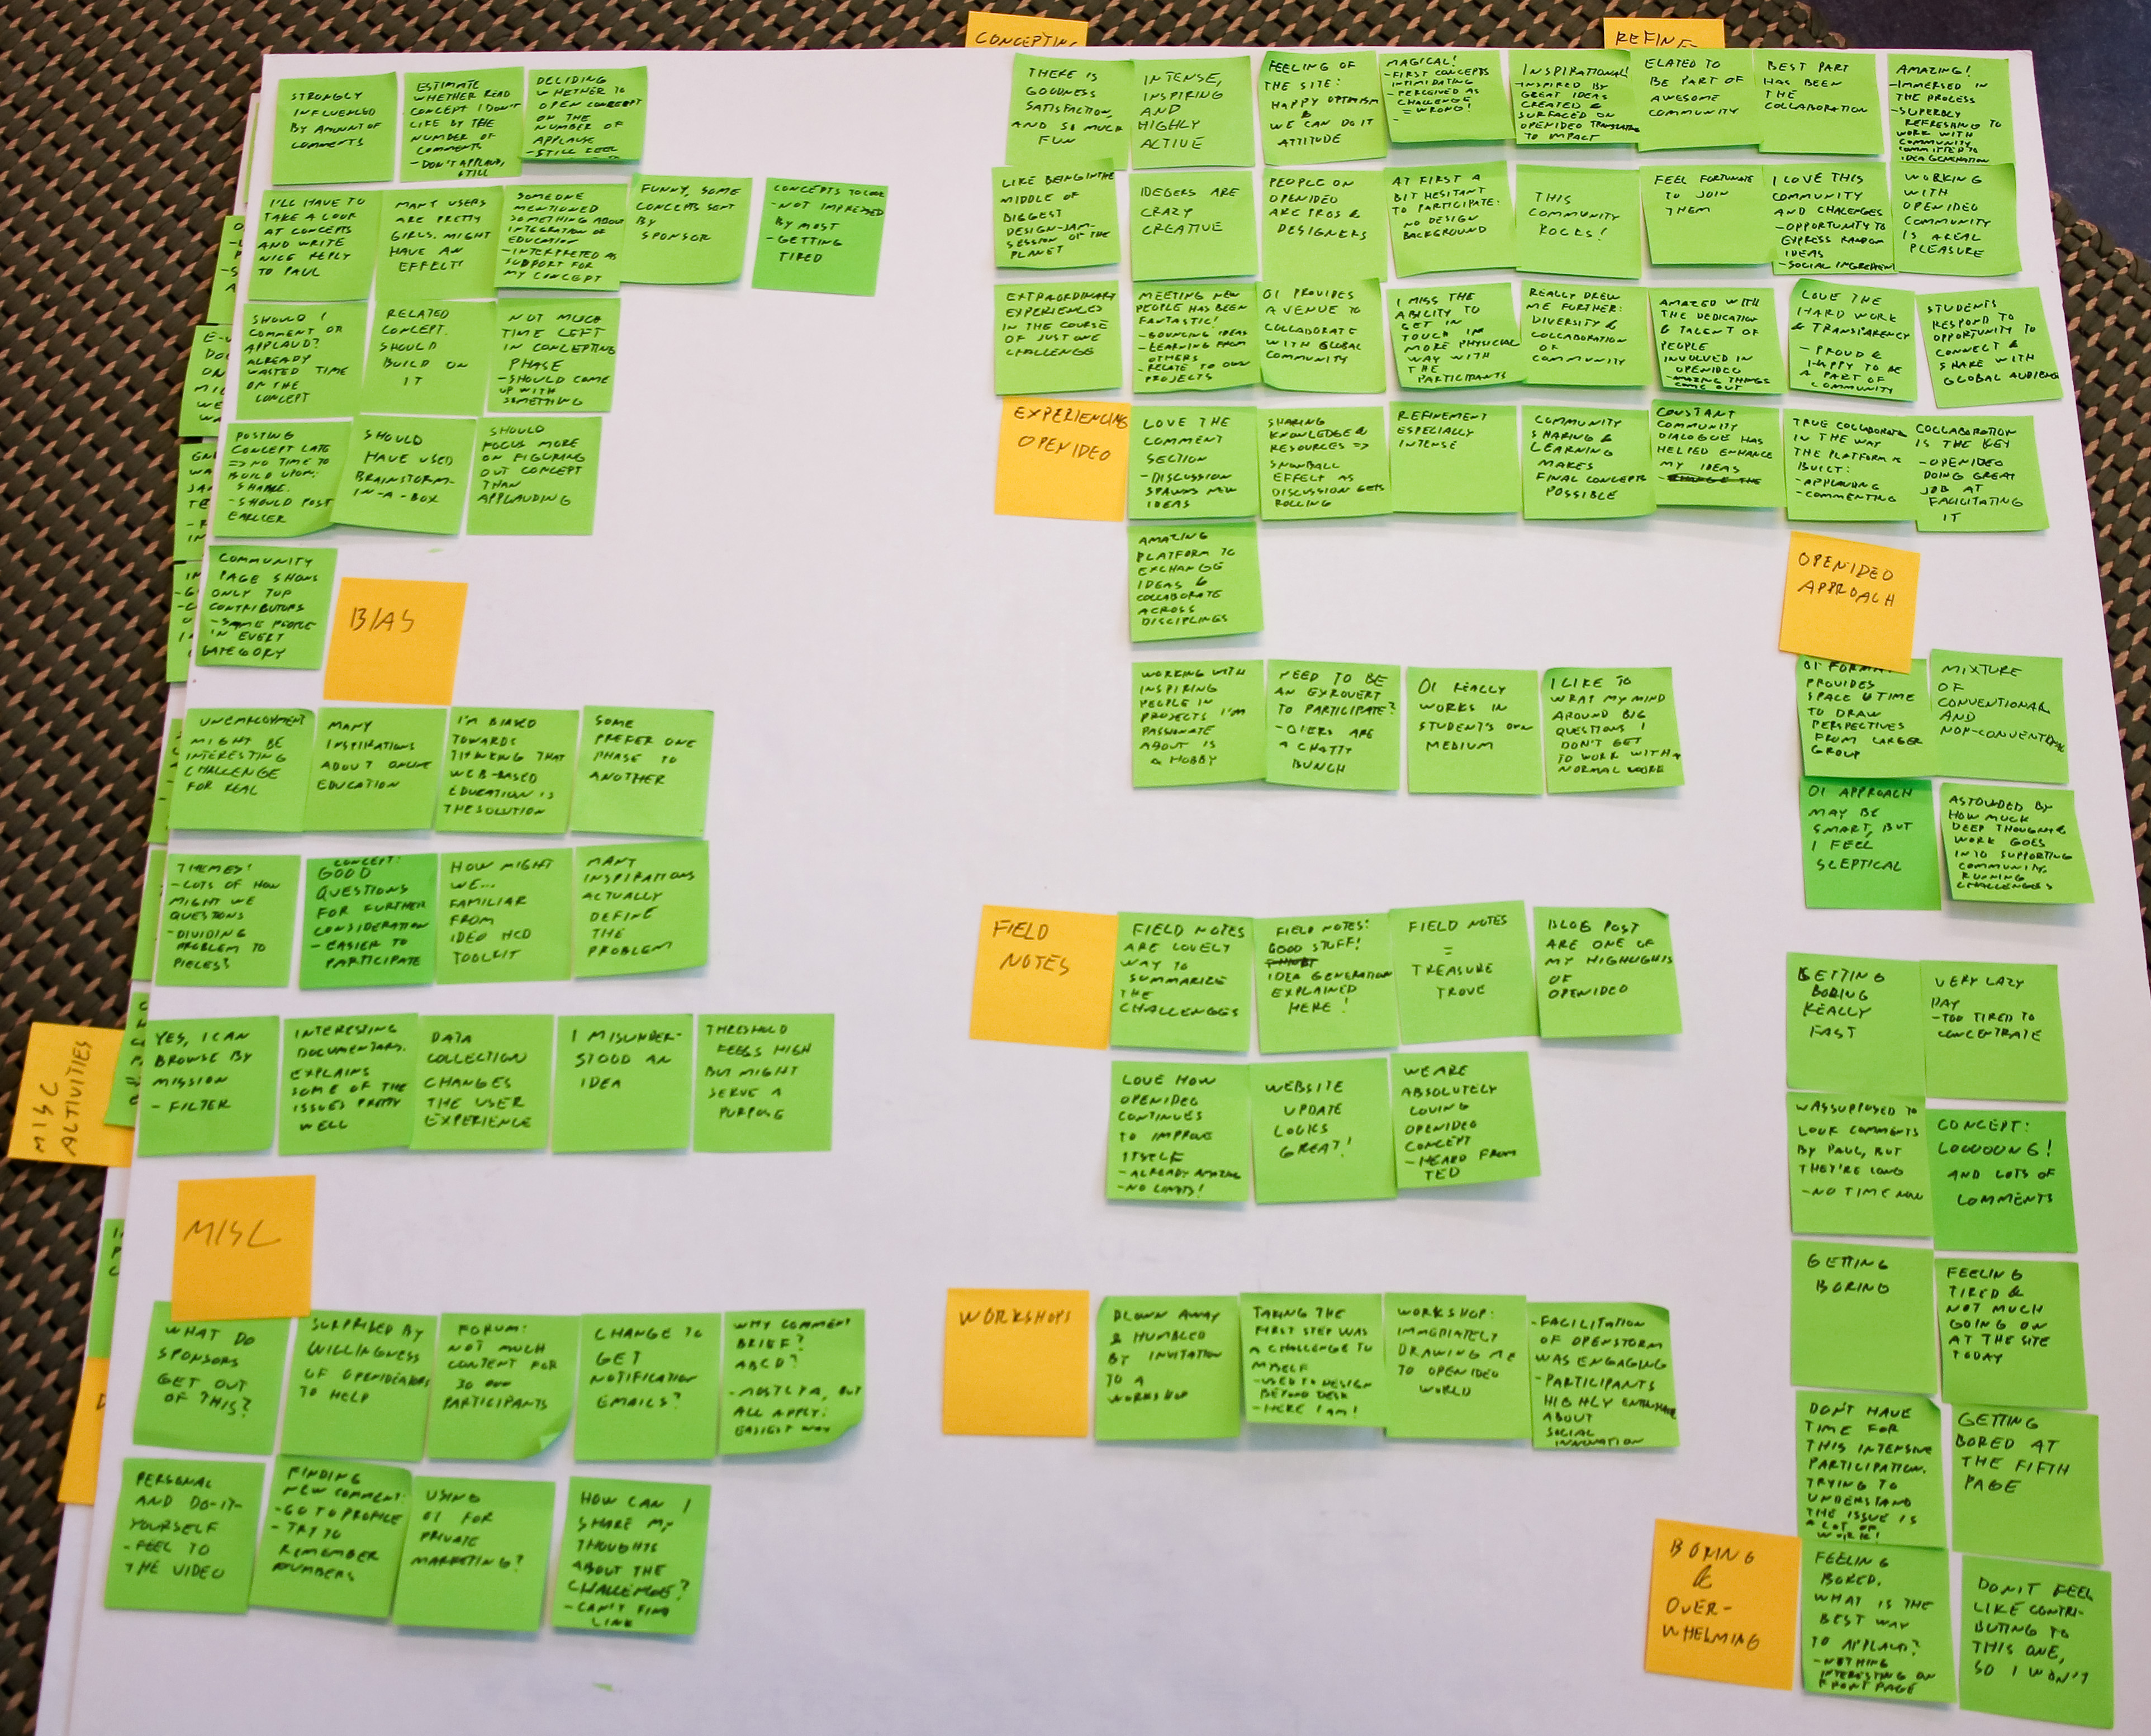 CONCEPTING
REFINE
STRONGLY
INFLUENCED
BY AMOUNT OF
COMMENTS
ESTIMATE
WHETHER READ
CONCEPT I DON'T
LIKE BY THE
NUMBER OF
COMMENTS
- DON'T APPLAUD,
STILL
DECIDING
WHETHER TO
OPEN CONCEPT
ON THE
NUMBER OF
APPLAUSE
- STILL FEEL
I'LL HAVE TO
TAKE A LOOK
AT CONCEPTS
AND WRITE
NICE REPLY
TO PAUL
MANY USERS
ARE PRETTY
GIRLS. MIGHT
HAVE AN
EFFECT!
SOMEONE
MENTIONED
SOMETHING ABOUT
INTEGRATION OF
EDUCATION
- INTERPRETED AS
SUPPORT FOR
MY CONCEPT
FUNNY, SOME
CONCEPTS SENT
BY
SPONSOR
CONCEPTS TO LOOK
- NOT IMPRESSED
BY MOST
- GETTING
TIRED
SHOULD I
COMMENT OR
APPLAUD?
ALREADY
WASTED TIME
ON THE
CONCEPT
RELATED
CONCEPT.
SHOULD
BUILD ON
IT
NOT MUCH
TIME LEFT
IN CONCEPTING
PHASE
- SHOULD COME
UP WITH
SOMETHING
POSTING
CONCEPT LATE
=> NO TIME TO
BUILD UPON.
SHAME.
- SHOULD POST
EARLIER
SHOULD
HAVE USED
BRAINSTORM-
IN-A-BOX
SHOULD
FOCUS MORE
ON FIGURING
OUT CONCEPT
THAN
APPLAUDING
COMMUNITY
PAGE SHOWS
ONLY TOP
CONTRIBUTORS
- SAME PEOPLE
IN EVERY
CATEGORY
BIAS
UNEMPLOYMENT
MIGHT BE
INTERESTING
CHALLENGE
FOR REAL
MANY
INSPIRATIONS
ABOUT ONLINE
EDUCATION
I'M BIASED
TOWARDS
THINKING THAT
WEB-BASED
EDUCATION IS
THE SOLUTION
SOME
PREFER ONE
PHASE TO
ANOTHER
THEMES!
- LOTS OF HOW
MIGHT WE
QUESTIONS
- DIVIDING
PROBLEM TO
PIECES?
CONCEPT:
GOOD
QUESTIONS
FOR FURTHER
CONSIDERATION
- EASIER TO
PARTICIPATE
HOW MIGHT
WE...
FAMILIAR
FROM
IDEO HCD
TOOLKIT
MANY
INSPIRATIONS
ACTUALLY
DEFINE
THE
PROBLEM
MISC
ACTIVITIES
YES, I CAN
BROWSE BY
MISSION
- FILTER
INTERESTING
DOCUMENTARY.
EXPLAINS
SOME OF THE
ISSUES PRETTY
WELL
DATA
COLLECTION
CHANGES
THE USER
EXPERIENCE
I MISUNDER-
STOOD AN
IDEA
THRESHOLD
FEELS HIGH
BUT MIGHT
SERVE A
PURPOSE
MISC
WHAT DO
SPONSORS
GET OUT
OF THIS?
SURPRISED BY
WILLINGNESS
OF OPENIDEATORS
TO HELP
FORUM:
NOT MUCH
CONTENT FOR
30 000
PARTICIPANTS
CHANGE TO
GET
NOTIFICATION
EMAILS?
WHY COMMENT
BRIEF?
ABCD?
- MOSTLY A, BUT
ALL APPLY.
EASIEST WAY
PERSONAL
AND DO-IT-
YOURSELF
- FEEL TO
THE VIDEO
FINDING
NEW COMMENT:
- GO TO PROFILE
- TRY TO
REMEMBER
NUMBERS
USING
OI FOR
PRIVATE
MARKETING?
HOW CAN I
SHARE MY
THOUGHTS
ABOUT THE
CHALLENGE?
- CAN'T FIND
LINK
THERE IS
GOODNESS
SATISFACTION,
AND SO MUCH
FUN
INTENSE,
INSPIRING
AND
HIGHLY
ACTIVE
FEELING OF
THE SITE:
HAPPY OPTIMISM
&
WE CAN DO IT
ATTITUDE
MAGICAL!
- FIRST CONCEPTS
INTIMIDATING
- PERCEIVED AS
CHALLENGE
= WRONG!
INSPIRATIONAL!
- INSPIRED BY
GREAT IDEAS
CREATED &
SURFACED ON
OPENIDEO TRANSLATING
TO IMPACT
ELATED TO
BE PART OF
AWESOME
COMMUNITY
BEST PART
HAS BEEN
THE
COLLABORATION
AMAZING!
- IMMERSED IN
THE PROCESS
- SUPERBLY
REFRESHING TO
WORK WITH
COMMUNITY
COMMITTED TO
IDEA GENERATION
LIKE BEING IN THE
MIDDLE OF
BIGGEST
DESIGN-JAM-
SESSION OF THE
PLANET
IDEOERS ARE
CRAZY
CREATIVE
PEOPLE ON
OPENIDEO
ARE PROS &
DESIGNERS
AT FIRST A
BIT HESITANT
TO PARTICIPATE:
NO DESIGN
BACKGROUND
THIS
COMMUNITY
ROCKS!
FEEL FORTUNATE
TO JOIN
THEM
I LOVE THIS
COMMUNITY
AND CHALLENGES
- OPPORTUNITY TO
EXPRESS RANDOM
IDEAS
- SOCIAL INGREDIENT
WORKING
WITH
OPENIDEO
COMMUNITY
IS A REAL
PLEASURE
EXTRAORDINARY
EXPERIENCES
IN THE COURSE
OF JUST ONE
CHALLENGE
MEETING NEW
PEOPLE HAS BEEN
FANTASTIC!
- BOUNCING IDEAS
- LEARNING FROM
OTHERS
- RELATE TO OWN
PROJECTS
OI PROVIDES
A VENUE TO
COLLABORATE
WITH GLOBAL
COMMUNITY
I MISS THE
ABILITY TO
GET IN
TOUCH IN
MORE PHYSICAL
WAY WITH
THE
PARTICIPANTS
REALLY DREW
ME FURTHER:
DIVERSITY &
COLLABORATION
OF
COMMUNITY
AMAZED WITH
THE DEDICATION
& TALENT OF
PEOPLE
INVOLVED IN
OPENIDEO
- AMAZING THINGS
COME OUT
LOVE THE
HARD WORK
& TRANSPARENCY
- PROUD &
HAPPY TO BE
A PART OF
COMMUNITY
STUDENTS
RESPOND TO
OPPORTUNITY TO
CONNECT &
SHARE WITH
GLOBAL AUDIENCE
EXPERIENCING
OPENIDEO
LOVE THE
COMMENT
SECTION
- DISCUSSION
SPAWNS NEW
IDEAS
SHARING
KNOWLEDGE &
RESOURCES =>
SNOWBALL
EFFECT AS
DISCUSSION GETS
ROLLING
REFINEMENT
ESPECIALLY
INTENSE
COMMUNITY
SHARING &
LEARNING
MAKES
FINAL CONCEPTS
POSSIBLE
CONSTANT
COMMUNITY
DIALOGUE HAS
HELPED ENHANCE
MY IDEAS
TRUE COLLABORATION
IN THE WAY
THE PLATFORM IS
BUILT:
- APPLAUDING
- COMMENTING
COLLABORATION
IS THE KEY
- OPENIDEO
DOING GREAT
JOB AT
FACILITATING
IT
AMAZING
PLATFORM TO
EXCHANGE
IDEAS &
COLLABORATE
ACROSS
DISCIPLINES
WORKING WITH
INSPIRING
PEOPLE IN
PROJECTS I'M
PASSIONATE
ABOUT IS
A HOBBY
NEED TO BE
AN EXROVERT
TO PARTICIPATE?
- OIERS ARE
A CHATTY
BUNCH
OI REALLY
WORKS IN
STUDENT'S OWN
MEDIUM
I LIKE TO
WRAP MY MIND
AROUND BIG
QUESTIONS I
DON'T GET
TO WORK WITH
NORMAL WORK
OPENIDEO
APPROACH
OI FORMAT
PROVIDES
SPACE & TIME
TO DRAW
PERSPECTIVES
FROM LARGER
GROUP
MIXTURE
OF
CONVENTIONAL
AND
NON-CONVENTIONAL
OI APPROACH
MAY BE
SMART, BUT
I FEEL
SCEPTICAL
ASTOUNDED BY
HOW MUCH
DEEP THOUGHT &
WORK GOES
INTO SUPPORTING
COMMUNITY,
RUNNING
CHALLENGES
FIELD
NOTES
FIELD NOTES
ARE LOVELY
WAY TO
SUMMARIZE
THE
CHALLENGES
FIELD NOTES:
GOOD STUFF!
IDEA GENERATION
EXPLAINED
HERE!
FIELD NOTES
=
TREASURE
TROVE
BLOG POST
ARE ONE OF
MY HIGHLIGHTS
OF
OPENIDEO
LOVE HOW
OPENIDEO
CONTINUES
TO IMPROVE
ITSELF
- ALREADY AMAZING
- NO LIMITS!
WEBSITE
UPDATE
LOOKS
GREAT!
WE ARE
ABSOLUTELY
LOVING
OPENIDEO
CONCEPT
- HEARD FROM
TED
WORKSHOPS
BLOWN AWAY
& HUMBLED
BY INVITATION
TO A
WORKSHOP
TAKING THE
FIRST STEP WAS
A CHALLENGE TO
MYSELF
- USED TO DESIGN
BEYOND DESK
- HERE I AM!
WORKSHOP:
IMMEDIATELY
DRAWING ME
TO OPENIDEO
WORLD
- FACILITATION
OF OPENSTORM
WAS ENGAGING
- PARTICIPANTS
HIGHLY ENTHUSIASTIC
ABOUT
SOCIAL
INNOVATION
GETTING
BORING
REALLY
FAST
VERY LAZY
DAY
- TOO TIRED TO
CONCENTRATE
WAS SUPPOSED TO
LOOK COMMENTS
BY PAUL, BUT
THEY'RE LONG
- NO TIME NOW
CONCEPT:
LOOOONG!
AND LOTS OF
COMMENTS
GETTING
BORING
FEELING
TIRED &
NOT MUCH
GOING ON
AT THE SITE
TODAY
DON'T HAVE
TIME FOR
THIS INTENSIVE
PARTICIPATION.
TRYING TO
UNDERSTAND
THE ISSUE IS
A LOT OF
WORK!
GETTING
BORED AT
THE FIFTH
PAGE
BORING
&
OVER-
WHELMING
FEELING
BORED.
WHAT IS THE
BEST WAY
TO APPLAUD?
- NOTHING
INTERESTING ON
FRONT PAGE
DON'T FEEL
LIKE CONTRI-
BUTING TO
THIS ONE,
SO I WON'T